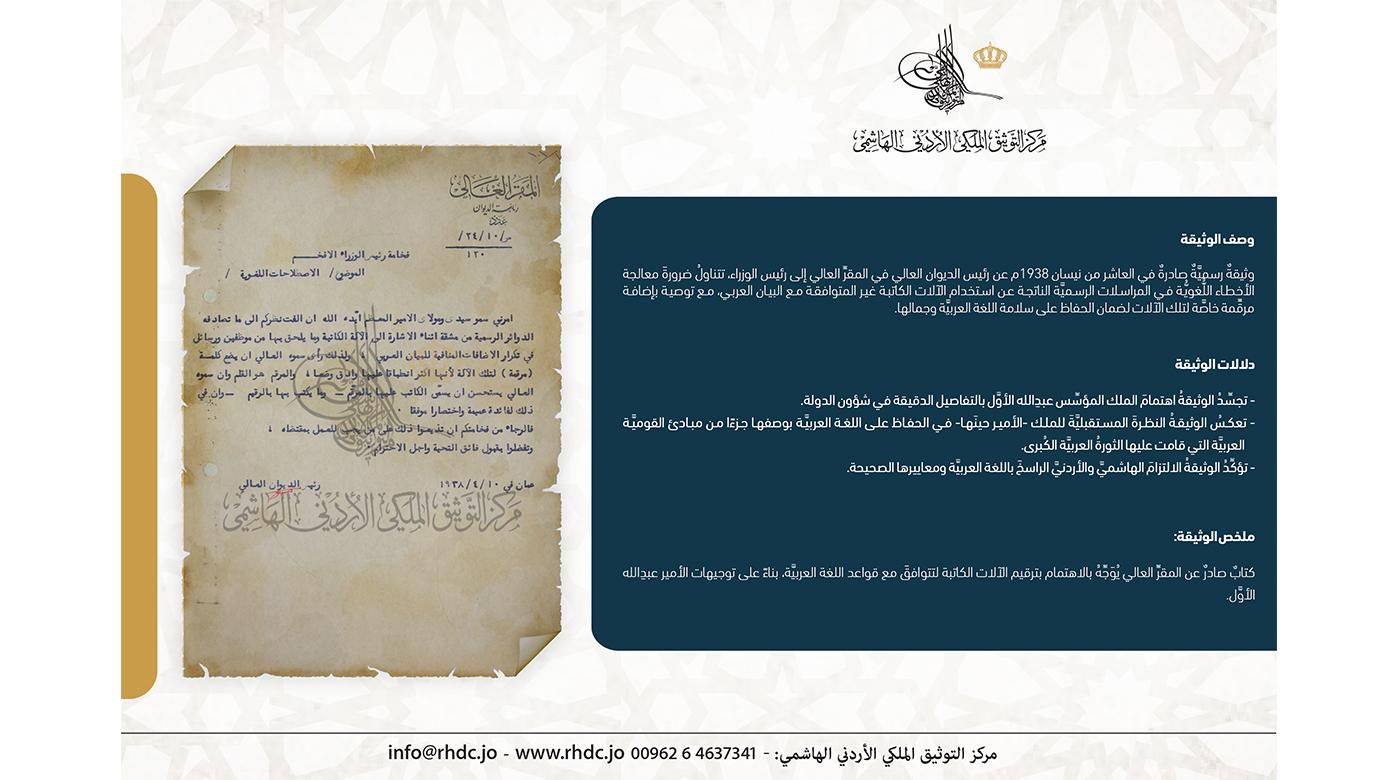 مركز التوثيق الملكي الأردني الهاشمي
وصف الوثيقة
وثيقةٌ رسميَّةٌ صادرةٌ في العاشر من نيسان 1938م عن رئيس الديوان العالي في المقرِّ العالي إلى رئيس الوزراء، تتناولُ ضرورةَ معالجة
الأخطاء اللُّغويَّة في المراسلات الرسميَّة الناتجة عن استخدام الآلات الكاتبة غير المتوافقة مع البيان العربي، مع توصية بإضافة
مرقِّمة خاصَّة لتلك الآلات لضمان الحفاظ على سلامة اللغة العربيَّة وجمالها.
دلالات الوثيقة
- تجسِّدُ الوثيقةُ اهتمامَ الملك المؤسِّس عبدالله الأوَّل بالتفاصيل الدقيقة في شؤون الدولة.
- تعكسُ الوثيقةُ النظرةَ المستقبليَّةَ للملك -الأمير حينَها- في الحفاظ على اللغة العربيَّة بوصفها جزءًا من مبادئ القوميَّة
العربيَّة التي قامت عليها الثورةُ العربيَّة الكُبرى.
- تؤكِّدُ الوثيقةُ الالتزامَ الهاشميَّ والأردنيَّ الراسخَ باللغة العربيَّة ومعاييرها الصحيحة.
ملخص الوثيقة:
كتابٌ صادرٌ عن المقرِّ العالي يُوَجِّهُ بالاهتمام بترقيم الآلات الكاتبة لتتوافقَ مع قواعد اللغة العربيَّة، بناءً على توجيهات الأمير عبدالله
الأوَّل.
المقر العالي
رئاسة الديوان
عدد
١٠/٢٤/
١٢٠
فخامة رئيس الوزراء الافخم
الموضوع/ الاصطلاحات اللغوية /
امرني سمو سيدي ومولاي الامير المعظم ايده الله ان الفت نظركم الى ما تصادفه
الدوائر الرسمية من مشقة اثناء الاشارة الى الآلة الكاتبة وما يلحق بها من موظفين ورسائل
في تكرار الاضافات المنافية للبيان العربي ، ولذلك رأى سموه العالي ان يضع كلمة
(مرقمة) لتلك الآلة لأنها اكثر انطباقا عليها وادق وصفا ، والمرقم هو القلم وان سموه
العالي يستحسن ان يسمى الكاتب عليها بالمرقم - وما يكتب بها بالرقيم - وان في
ذلك لفائدة عميمة واختصارا موفقا .
فالرجاء من فخامتكم ان تذيعوا ذلك على من يجب للعمل بمقتضاه ،
وتفضلوا بقبول فائق التحية واجل الاحترام
عمان في ١٠ / ٤ / ١٩٣٨
رئيس الديوان العالي
مركز التوثيق الملكي الأردني الهاشمي
مركز التوثيق الملكي الأردني الهاشمي: - 00962 6 4637341 www.rhdc.jo - info@rhdc.jo